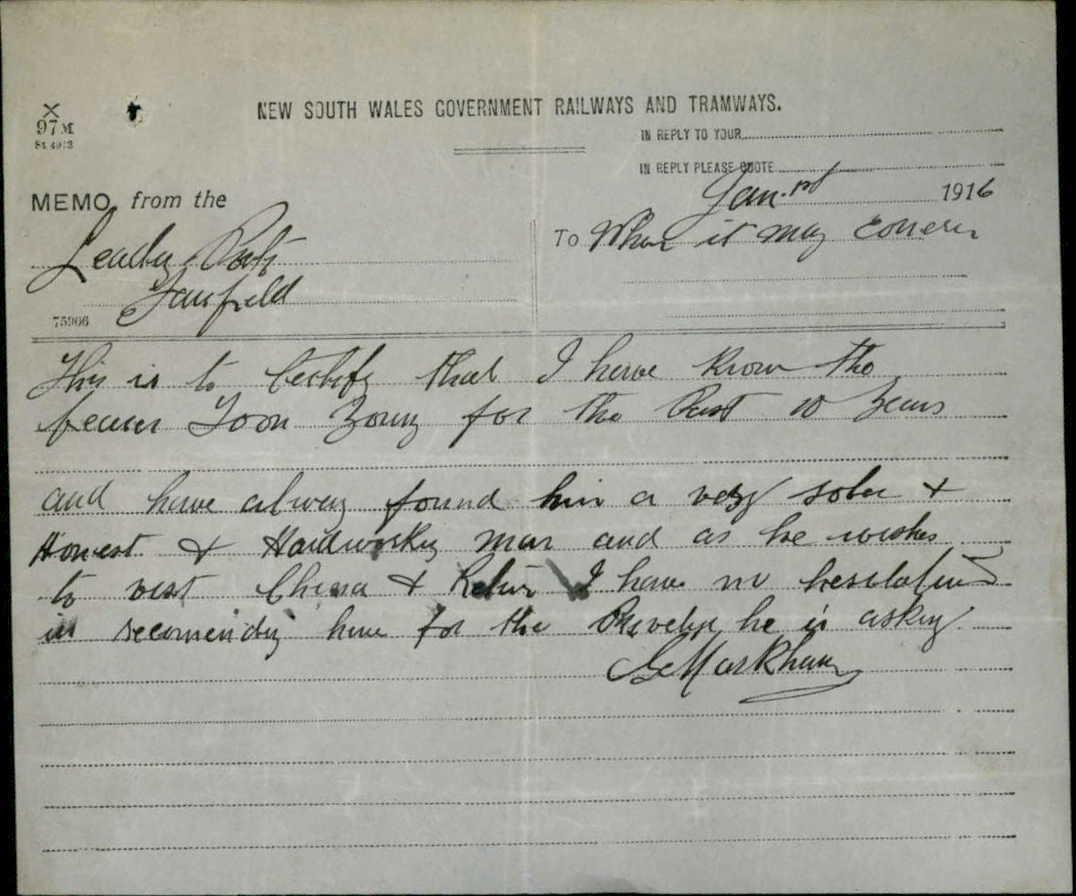 X
97M
NEW SOUTH WALES GOVERNMENT RAILWAYS AND TRAMWAYS.
IN REPLY TO YOUR
IN REPLY PLEASE QUOTE
Jan. 1st 1916
MEMO from the
To Whom it may concern
Fairfield
75966
This is to testify that I have known the
bearer Yoon for the Past 10 Years
and have alway found him a very sober &
Honest & Hardworking man and as he wishes
to visit China & Return I have no hesitation
in recomending him for the he is asking.
Markham